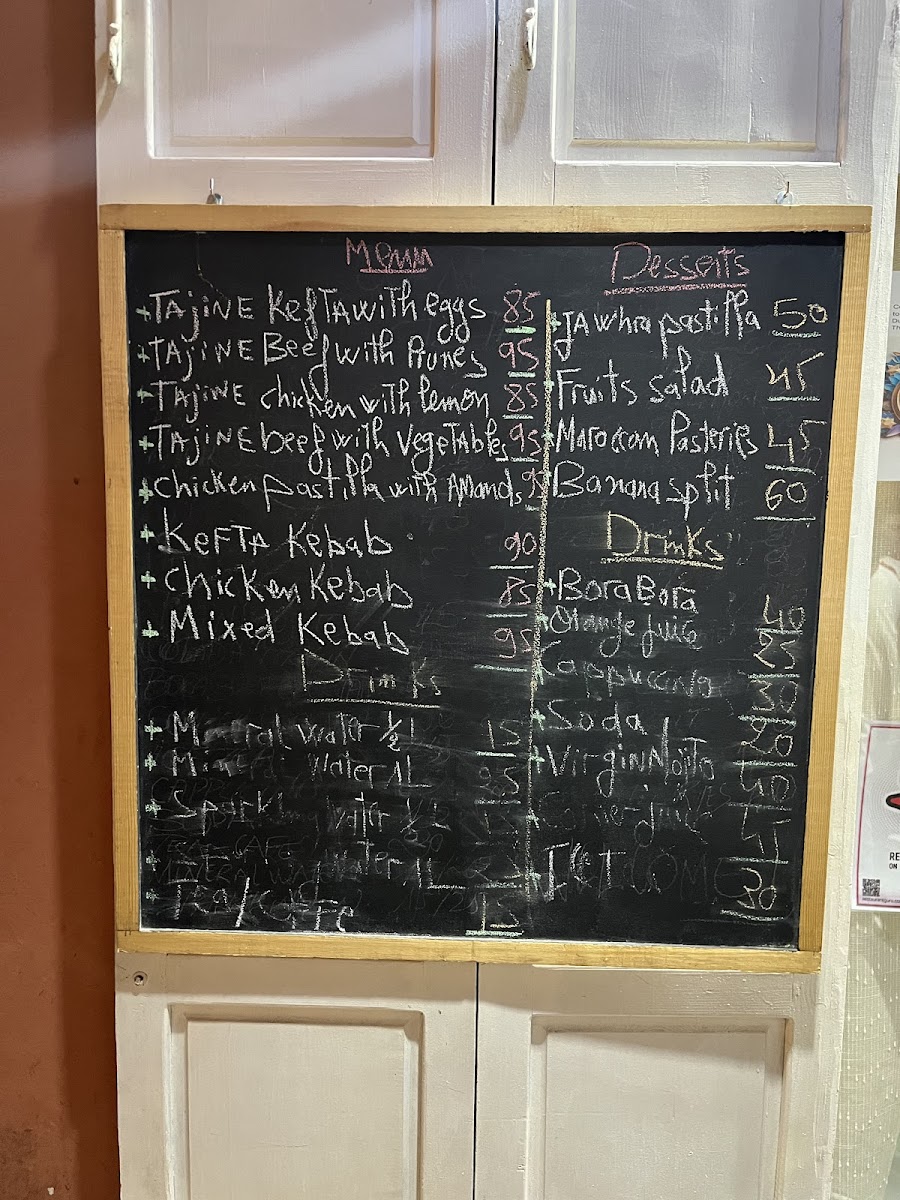 Menu
+TAjiNE KefTA with eggs 85
+TAjiNE Beef with Prunes 95
+TAjiNE chicken with lemon 85
+TAjiNE beef with VegeTAbles 95
+chicken pastilla with AMands
+KeFTA Kebab 90
+chicken Kebab 85
+Mixed Kebab 95
Drinks
+Mineral water ½L 15
+ water 1L 25
+ water ½L
water 1L
+Tea/cafe 15
Desserts
+JAwhra pastilla 50
+Fruits salad 45
+Maroccam Pasteries 45
+Banana split 60
Drinks
+Bora Bora 40
+Orange juice 25
Cappuccino 30
+Soda 20
+Virgin Mojito 40
juice
30
RE
ON